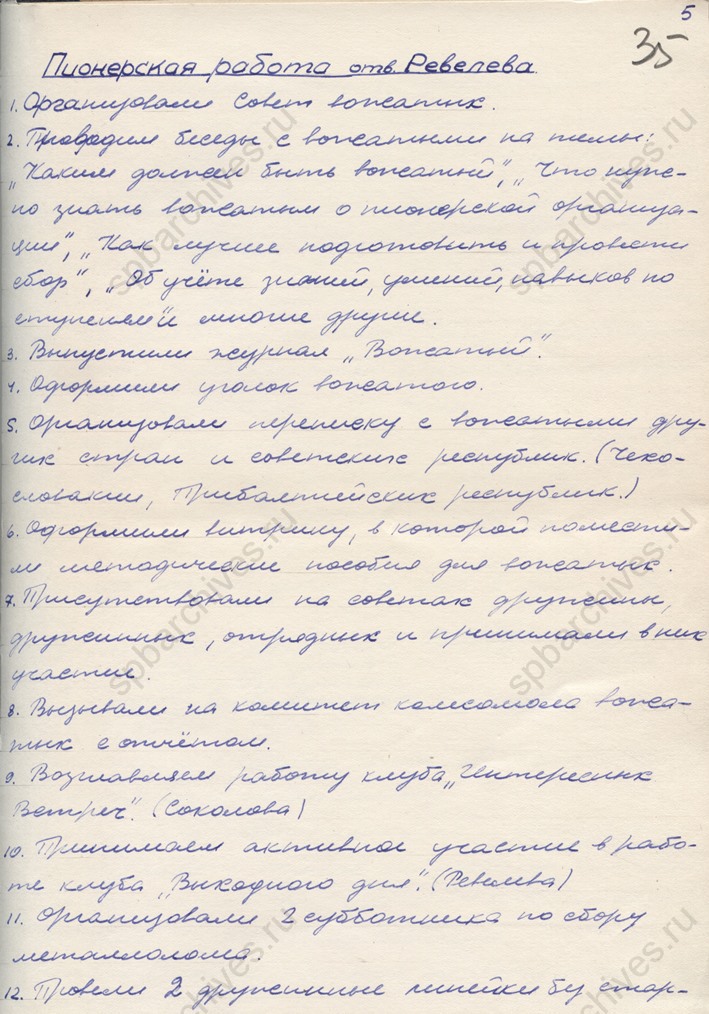 5
35
Пионерская работа отв. Ревелева
1. Организовали Совет вожатых.
2. Проводим беседы с вожатыми на темы:
„Каким должен быть вожатый", „Что нуж-
но знать вожатым о пионерской организа-
ции", „Как лучше подготовить и провести
сбор", „Об учёте знаний, умений, навыков по
ступеням" и многие другие.
3. Выпустили журнал „Вожатый".
4. Оформили уголок вожатого.
5. Организовали переписку с вожатыми дру-
гих стран и советских республик. (Чехо-
словакии, Прибалтийских республик.)
6. Оформили витрину, в которой помести-
ли методические пособия для вожатых.
7. Присутствовали на советах дружины,
дружинных, отрядных и принимали в них
участие.
8. Вызывали на комитет комсомола вожа-
тых с отчётом.
9. Возглавляем работу клуба „Интересных
Встреч". (Соколова)
10. Принимаем активное участие в рабо-
те клуба „Выходного дня". (Ревелева)
11. Организовали 2 субботника по сбору
металлолома.
12. Провели 2 дружинные линейки без стар-
spbarchives.ru
spbarchives.ru
spbarchives.ru
spbarchives.ru
spbarchives.ru
spbarchives.ru